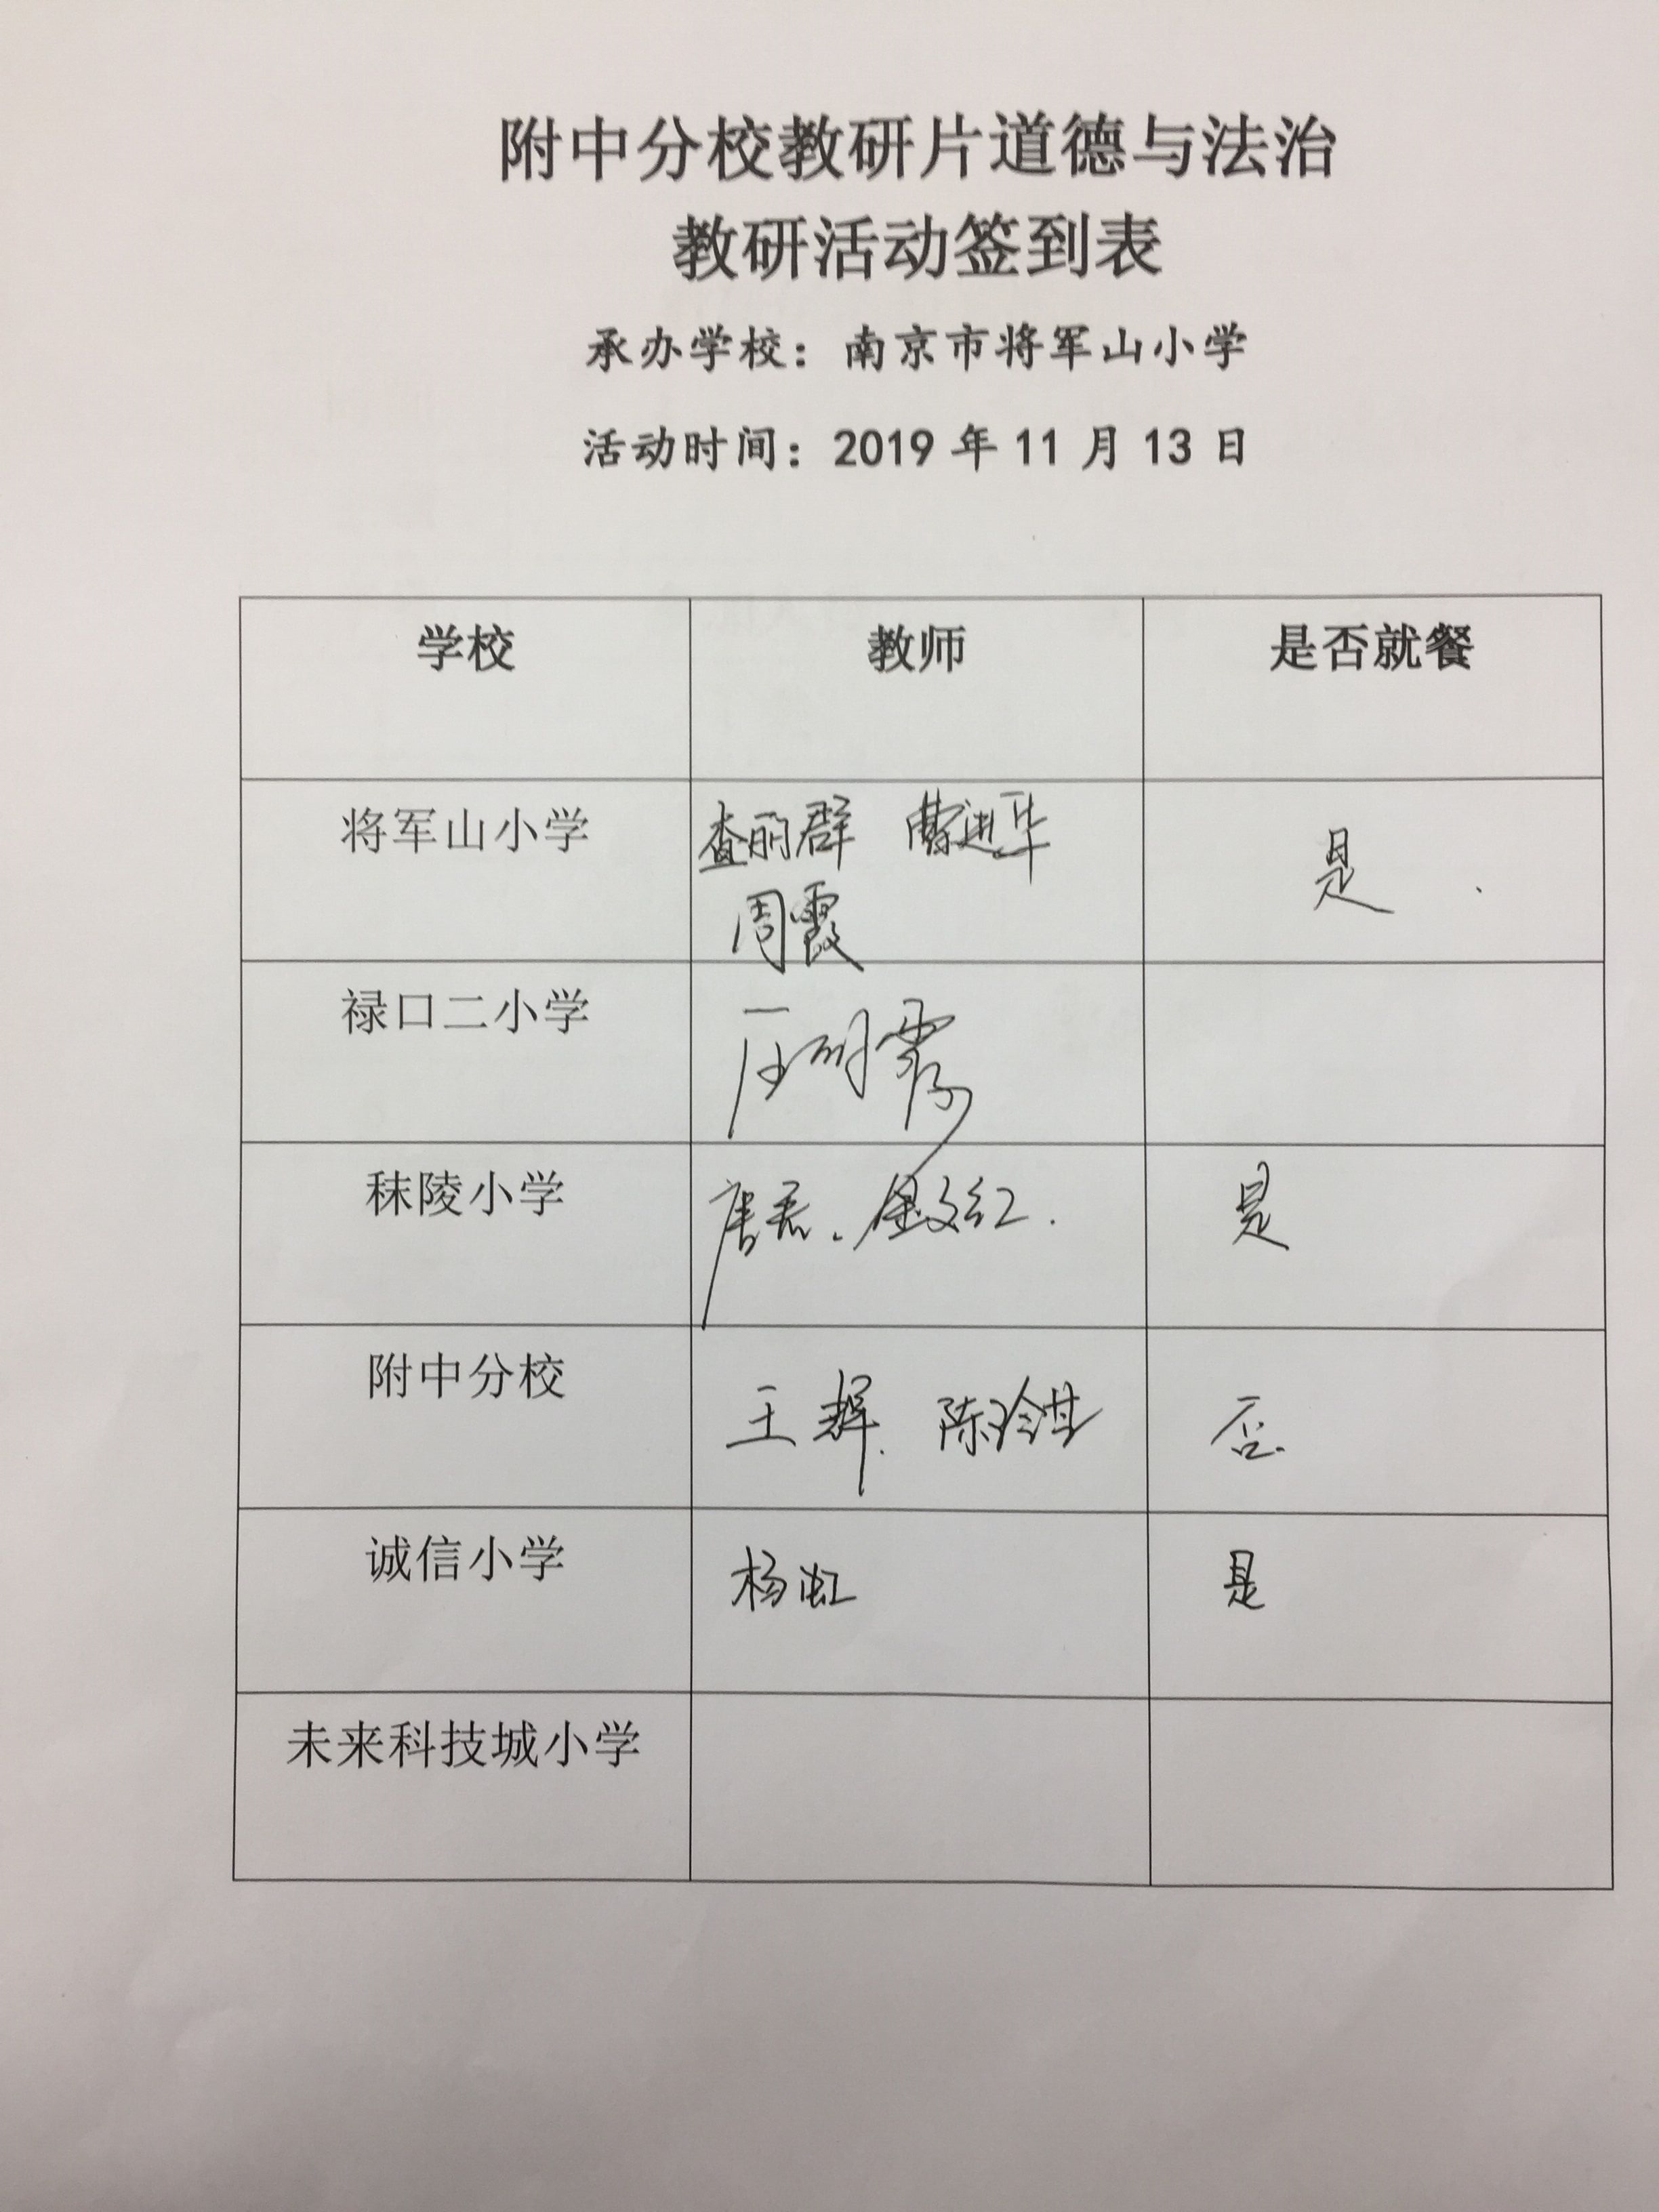 附中分校教研片道德与法治
教研活动签到表
承办学校：南京市将军山小学
活动时间：2019 年 11 月 13 日
学校 教师 是否就餐
将军山小学 查丽群 曹进华 是
周霞
禄口二小学
秣陵小学 唐君、金文红. 是
附中分校 王辉. 陈玲琪 否.
诚信小学 杨虹 是
未来科技城小学